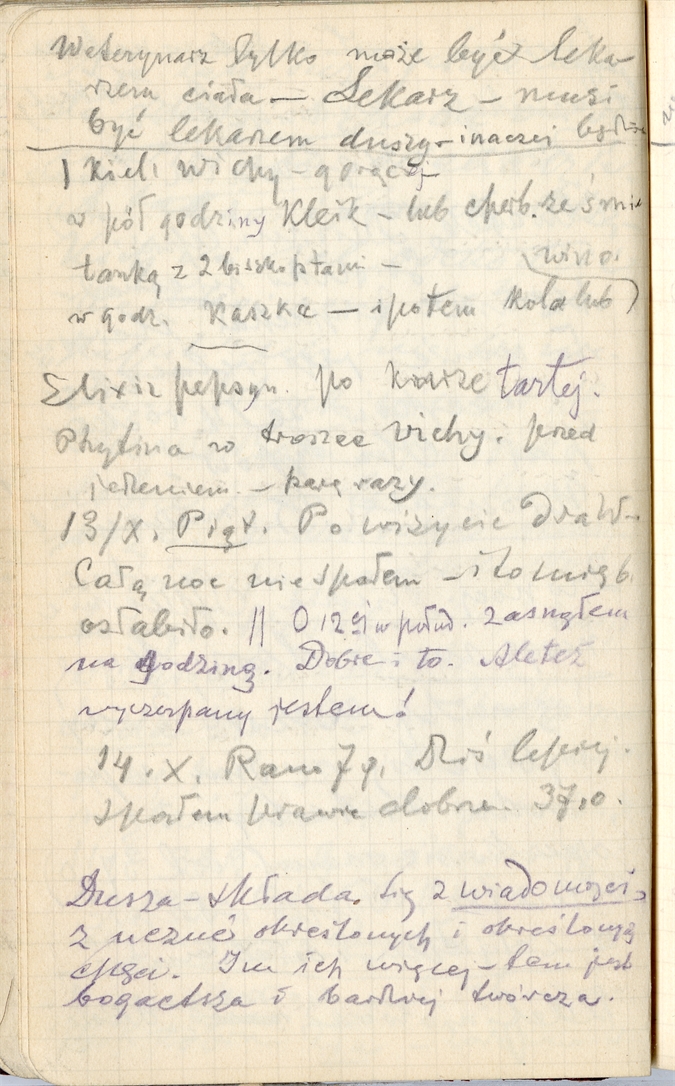 Weterynarz tylko może być leka-
rzem ciała — Lekarz — musi
być lekarzem duszy — inaczej
1 kiel. Vichy — gorącej
w pół godziny Kleik — lub cherb. ze śmie
tanką z 2 biszkoptami —
wino.
w godz. Kaszka — i potem Kola lub
Elixir pepsyn. po kaszce tartej.
Phytina w troszce Vichy. przed
jedzeniem — parę razy.
13/X. Piąt. Po wizycie Dra W.
Całą noc nie spałem — i to mię b.
osłabiło. || O 12 g. w połud. zasnąłem
na godzinę. Dobre i to. Ale też
wyczerpany jestem!
14. X. Rano 7 g. Dziś lepiej.
Spałem prawie dobrze. 37,0.
Dusza — składa się z wiadomości,
z uczuć określonych i określonych
chęci. Im ich więcej — tem jest
bogatsza i bardziej twórcza.